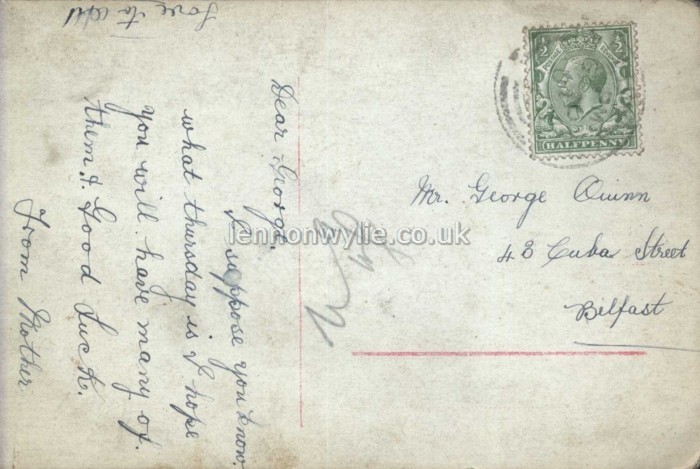 Dear George,
I suppose you know
what thursday is I hope
you will have many of
them & Good Luck.
From Mother.
love to all
Mr. George Quinn
48 Cuba Street
Belfast
HALFPENNY
lennonwylie.co.uk